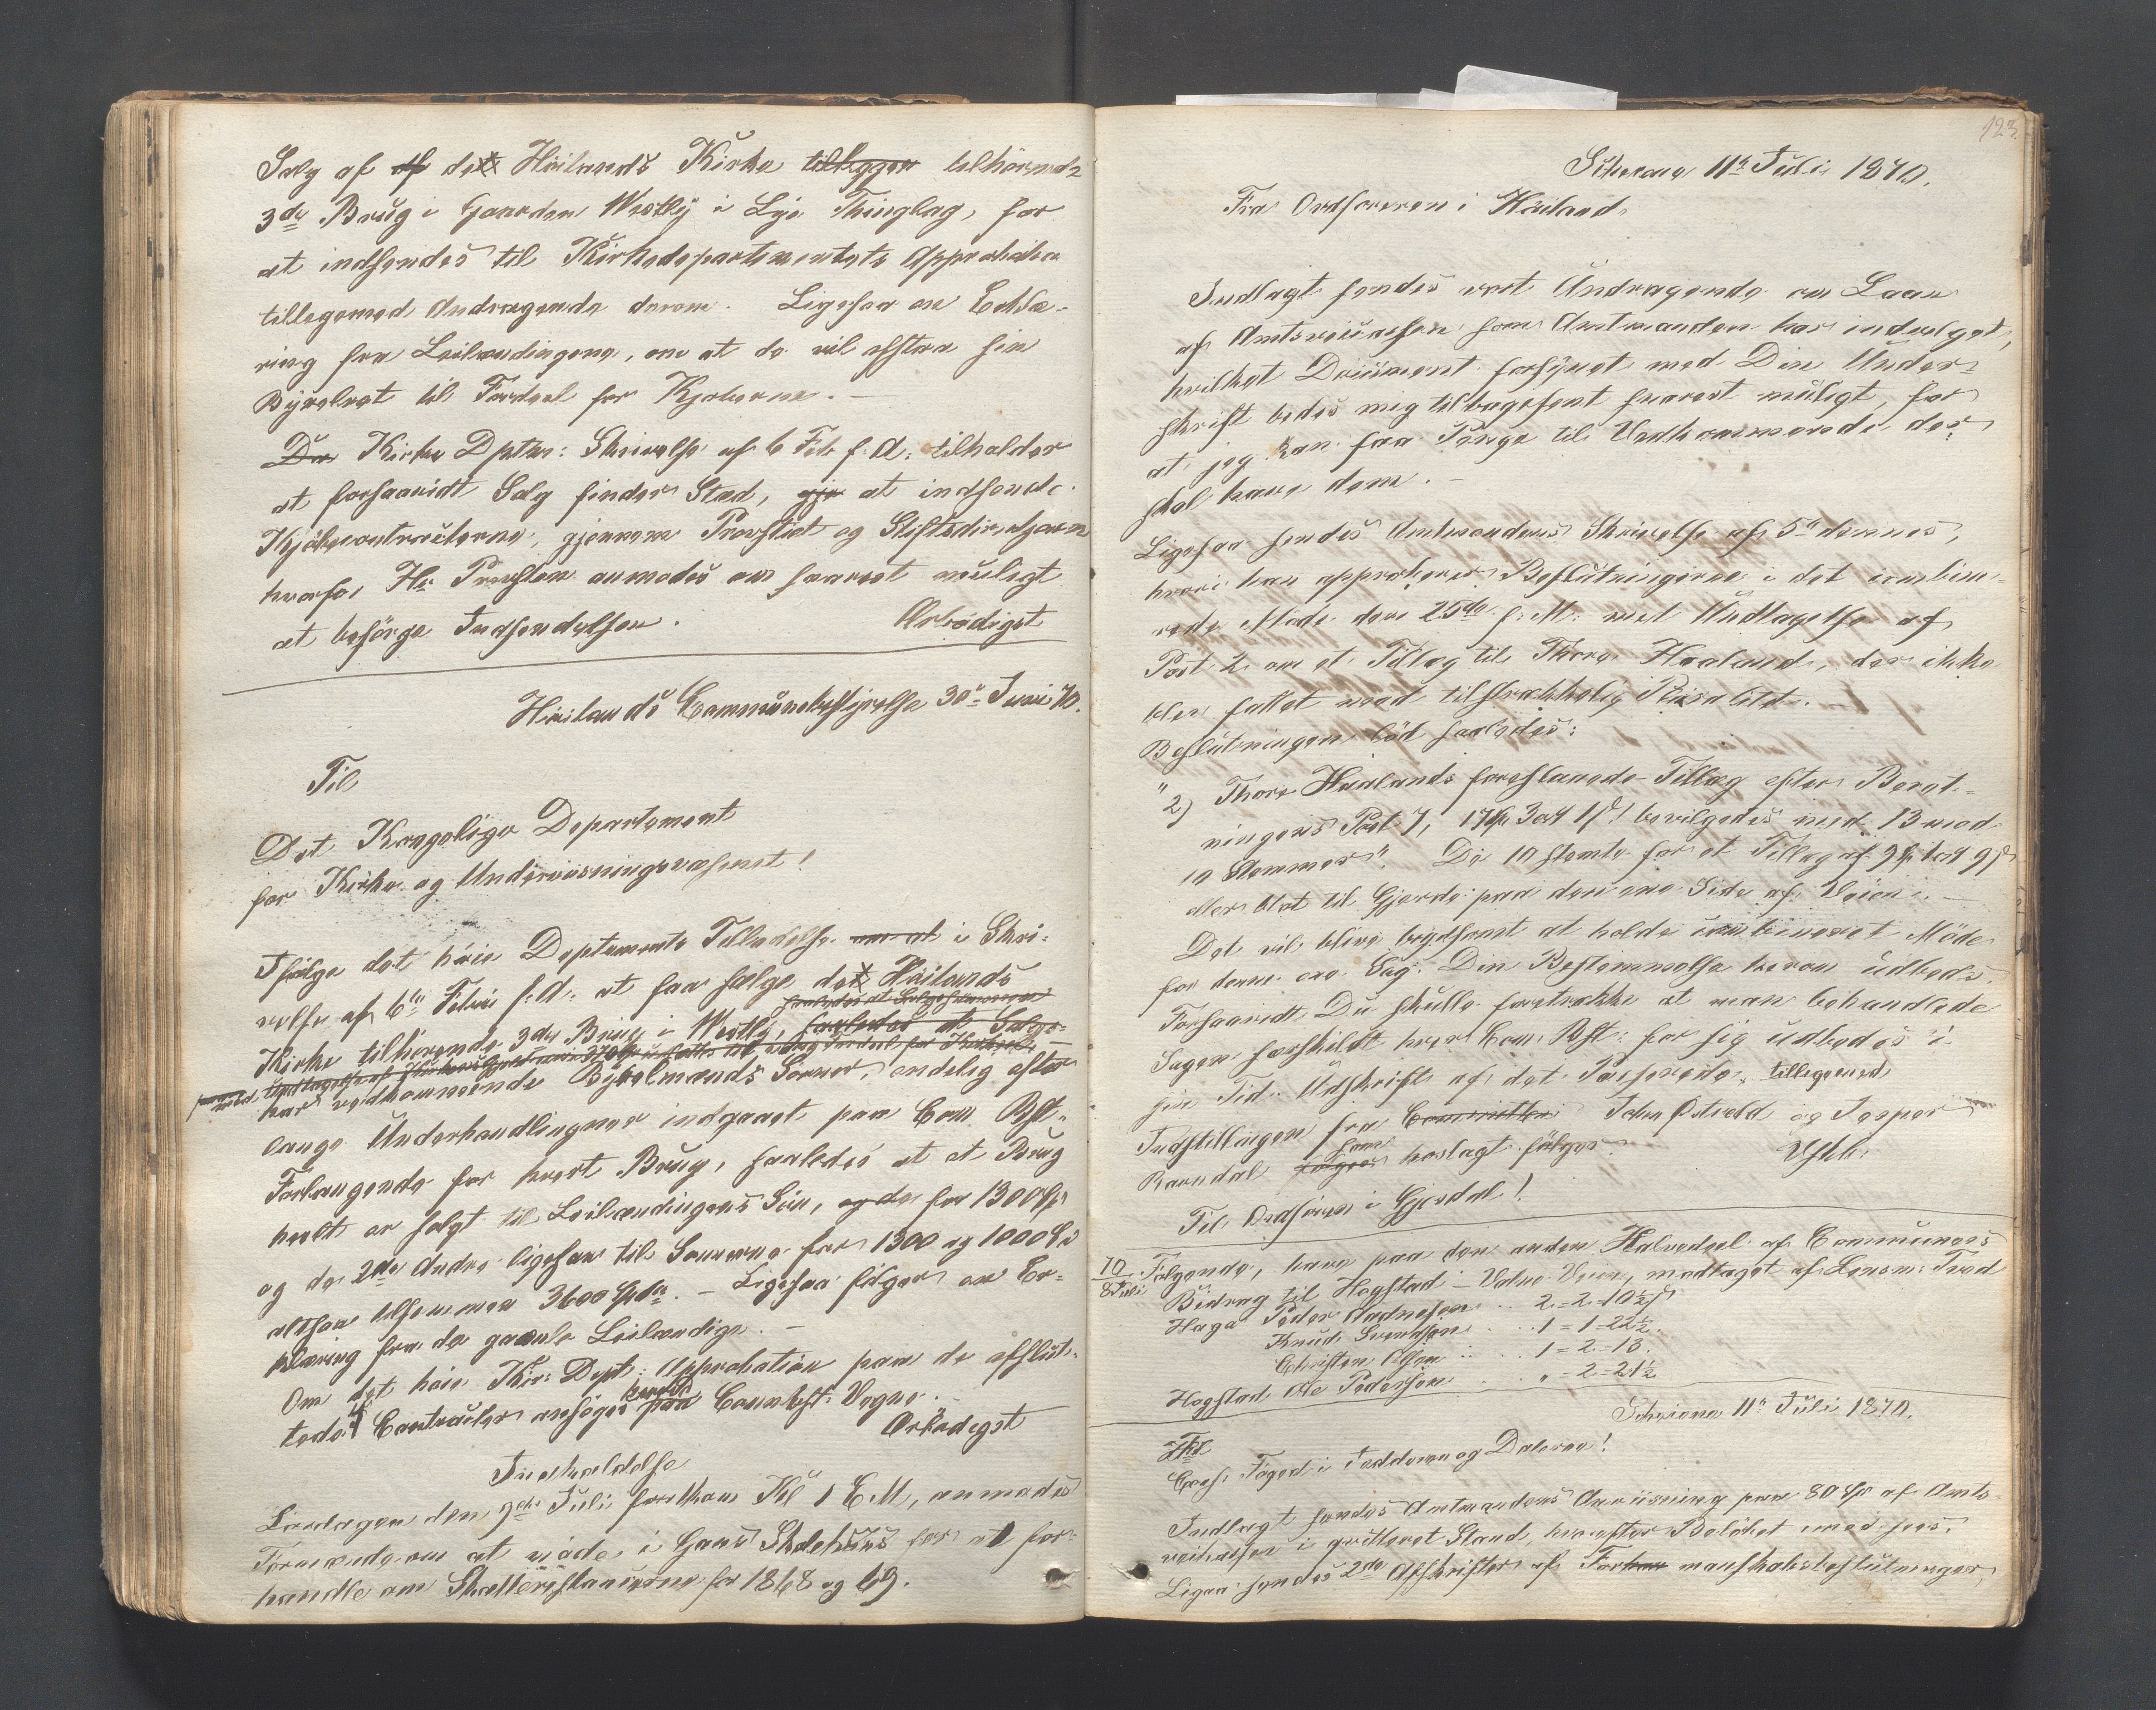 Salg af af det Höilands Kirke tillegger tilhörende
3de Brug i Gaarden Westly i Lye Thinglag, for
at indsendes til Kirkedepartementets Approbation
tillegemed Andragende derom. Ligesaa en Erklæ-
ring fra Leilændingene, om at de vil afstaa sin
Byxelret til Fordeel for Kjøberne. —
Du Kirke Dptm: Skrivelse af 6 Feb f. A. tilholder
at forsaavidt Salg finder Sted, gje at indsende
Kjöbecontracterne, gjennem Provstiet og Stiftsdirectionen
hvorfor Hr Presten anmodes om snarest muligt
at besörge Indsendelsen. Ærbödigst
Höilands Communebestyrelse 30te Juni 70.
Til
Det Kongelige Departement
for Kirke og Underviisningsvæsenet!
Ifölge det höie Deptements Tilladelse om at i Skri-
velse af 6te Febrú f. A. at faa sælge det Höilands
saaledes at Salgssummen
Kirke tilhörende 3de Brug i Westly, saaledes at Salgs-
med Undtagelse af
har vedkommende Byxelmænds Sönner, endelig efter
lange Underhandlinger indgaaet paa Com Bst.
Forlangende for hvert Brug, saaledes at et Brug
heelt er solgt til Leilændingens Sön, og de for 1300 Sp
og de 2de Andre ligesaa til Sönnerne for 1300 og 1000 Sp
altsaa tilsammen 3600 Spd. — Ligesaa fölger en Er-
klæring fra de gamle Leilændige. —
Om det höie Kir: Dept: Approbation paa de afslut-
tede Contracter ansöges herved paa Combst: Vegne.
Ærbödigst
Indkaldelse
Lördagen den 9de Juli førstkom Kl 1 E.M, anmodes
Formændene om at möde i Gans Skolehuus for at for-
handle om Skatterestancerne for 1868 og 69.
123
Scheiane 11te Juli 1870.
Fra Ordföreren i Höiland
Indlagt sendes vort Andragende om Laan
af Amtsveicassen som Amtmanden har indvilget,
hvilket Document forsynet med Din Under-
skrift bedes mig tilbagesent snarest muligt, for
at jeg kan faa Penge til Vedkommende der
skal have dem. —
Ligesaa sendes Amtmandens Skrivelse af 5te dennes,
hvori han approberer Beslutningerne i det combine-
rede Möde den 25de f: M: med Undtagelse af
Post 2 om et Tillæg til Thore Haaland, der ikke
blev fattet med tilstrækkelig Pluralitet.
Beslutningen löd saaledes:
"2) Thore Haalands foreslaaede Tillæg efter Beret-
ningens Post 7, 17 Sp 3 ort 1 s! bevilgedes med 13 mod
10 Stemmer". De 10 stemte for et Tillæg af 9 Sp 1 ort 9 s
eller blot til Gjerde paa den ene Side af Veien. —
Det vil blive bydsomt at holde combineret Möde
for denne ene Sag. Din Bestemmelse herom udbeds.
Forsaavidt Du skulle foretrække at man behandlede
Sagen særskildt hver Com. Bst: for sig udbedes i
sin Tid Udskrift af det Passerede, tillegemed
Indstillingen fra Committeen John Ostvold og Jesper
Ravndal fölger som hoslagt fölger.
Til Ordförer i Gjesdal!
10/8 Juli Fölgende, have paa den anden Halvedeel af Communens
Bidrag til Hogstad – Vatne Veien, modtaget af Lensm: Tved
Haga Peder Aadnesen .. 2 = 2 = 10½ s
Knud Svendsen ... 1 = 1 = 22½
Christen Olsen .. 1 = 2 = 13.
Hogstad Ole Pedersen ... " = 2 = 21½
Scheiane 11te Juli 1870.
Til
Const. Foged i Jædderen og Dalerne!
Indlagt sendes Amtmandens Anviisning paa 80 Sp af Amts-
veikassen i qvitteret Stand, hvorefter Belöbet imødsees.
Ligesaa sendes 2de Afskrifter af Formandskabsbeslutninger,